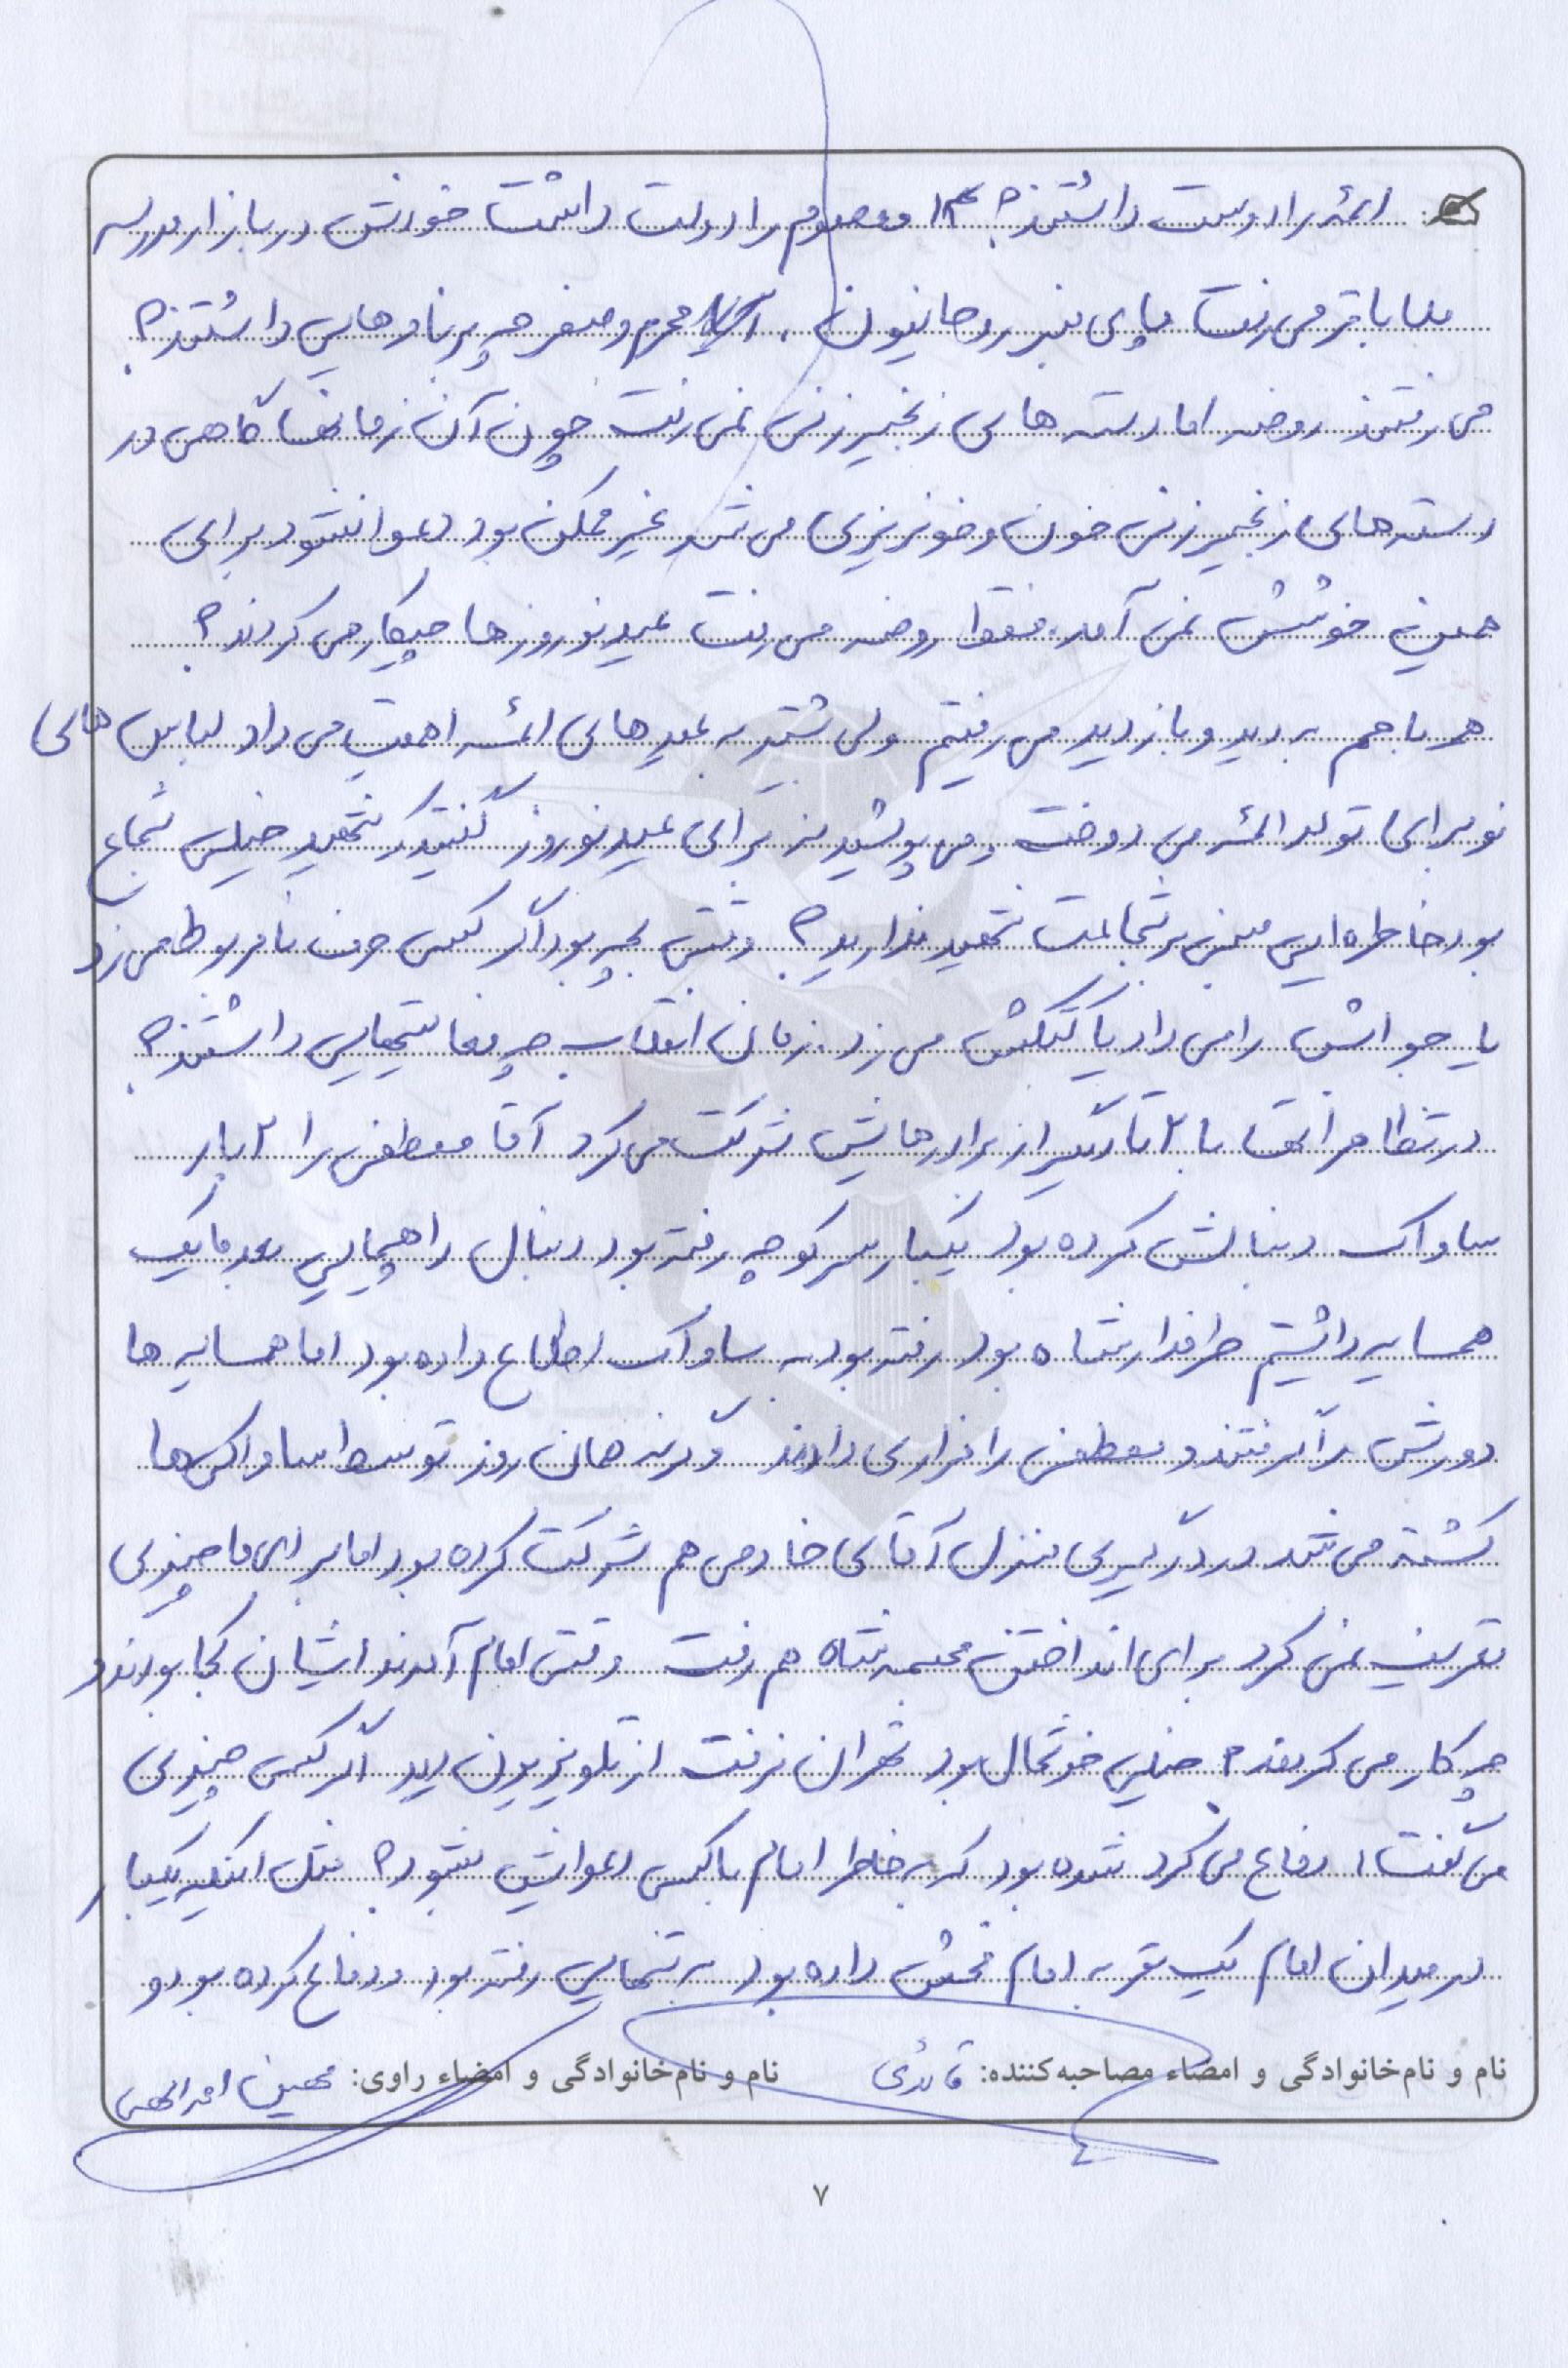 ائمه را دوست داشتند؟ ۱۴ معصوم را دوست داشت خودش در بازار مدرسه
ملا باقر می رفت پای منبر روحانیون. محرم و صفر چه برنامه هایی داشتند؟
می رفتند روضه اما دسته های زنجیر زنی نمی رفت چون آن زمانها گاهی در
دسته های زنجیر زنی خون و خونریزی می شد غیر ممکن بود دعوا نشود برای
همین خوشش نمی آمد. فقط روضه می رفت عید نوروزها چیکار می کردند؟
همه باهم به دید و بازدید می رفتیم ولی بیشتر به عیدهای ائمه اهمیت می داد لباس های
نو برای تولد ائمه می دوخت و می پوشید نه برای عید نوروز گفتید که شهید خیلی شجاع
بود خاطره ایی مبنی بر شجاعت شهید ندارید؟ وقتی بچه بود اگر کسی حرف نامربوط می زد
یا جوابش را می داد یا کتکش می زد. زمان انقلاب چه فعالیتهایی داشتند؟
در تظاهراتها با ۲ تا دیگر از برادرهایش شرکت می کرد آقا مصطفی را ۲ بار
ساواک دنبالش کرده بود یکبار سر کوچه رفته بود دنبال راهپیمایی بعد ما یک
همسایه داشتیم طرفدار شاه بود رفته بود به ساواک اطلاع داده بود اما همسایه ها
دورش را گرفتند و مصطفی را فراری دادند وگرنه همان روز توسط ساواکی ها
کشته می شد در درگیری منزل آقای خادمی هم شرکت کرده بود اما برای ما چیزی
تعریف نمی کرد برای انداختن مجسمه شاه هم رفت وقتی امام آمدند ایشان کجا بودند و
چه کار می کردند؟ خیلی خوشحال بود تهران نرفت از تلویزیون دید اگر کسی چیزی
می گفت، دفاع می کرد شده بود که به خاطر امام با کسی دعوایش بشود؟ مثل اینکه یکبار
در میدان امام یک نفر به امام فحش داده بود به تنهایی رفته بود و دفاع کرده بود و
نام و نام‌خانوادگی و امضاء مصاحبه‌کننده: قائدی نام و نام‌خانوادگی و امضاء راوی: مهین
۷